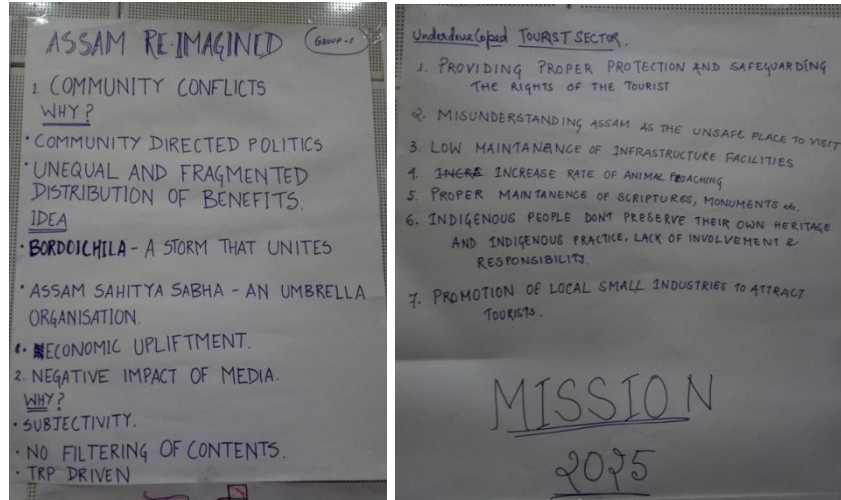 ASSAM RE-IMAGINED
GROUP-1
1. COMMUNITY CONFLICTS
WHY?
• COMMUNITY DIRECTED POLITICS
• UNEQUAL AND FRAGMENTED
DISTRIBUTION OF BENEFITS.
IDEA
• BORDOICHILA - A STORM THAT UNITES
• ASSAM SAHITYA SABHA - AN UMBRELLA
ORGANISATION.
• ECONOMIC UPLIFTMENT.
2. NEGATIVE IMPACT OF MEDIA.
WHY?
• SUBJECTIVITY.
• NO FILTERING OF CONTENTS.
• TRP DRIVEN
Underdeveloped TOURIST SECTOR.
1. PROVIDING PROPER PROTECTION AND SAFEGUARDING
THE RIGHTS OF THE TOURIST
2. MISUNDERSTANDING ASSAM AS THE UNSAFE PLACE TO VISIT
3. LOW MAINTANANCE OF INFRASTRUCTURE FACILITIES
4. INCRE INCREASE RATE OF ANIMAL PROACHING
5. PROPER MAINTANENCE OF SCRIPTURES, MONUMENTS etc.
6. INDIGENOUS PEOPLE DONT PRESERVE THEIR OWN HERITAGE
AND INDIGENOUS PRACTICE, LACK OF INVOLVEMENT &
RESPONSIBILITY.
7. PROMOTION OF LOCAL SMALL INDUSTRIES TO ATTRACT
TOURISTS.
MISSION
2025